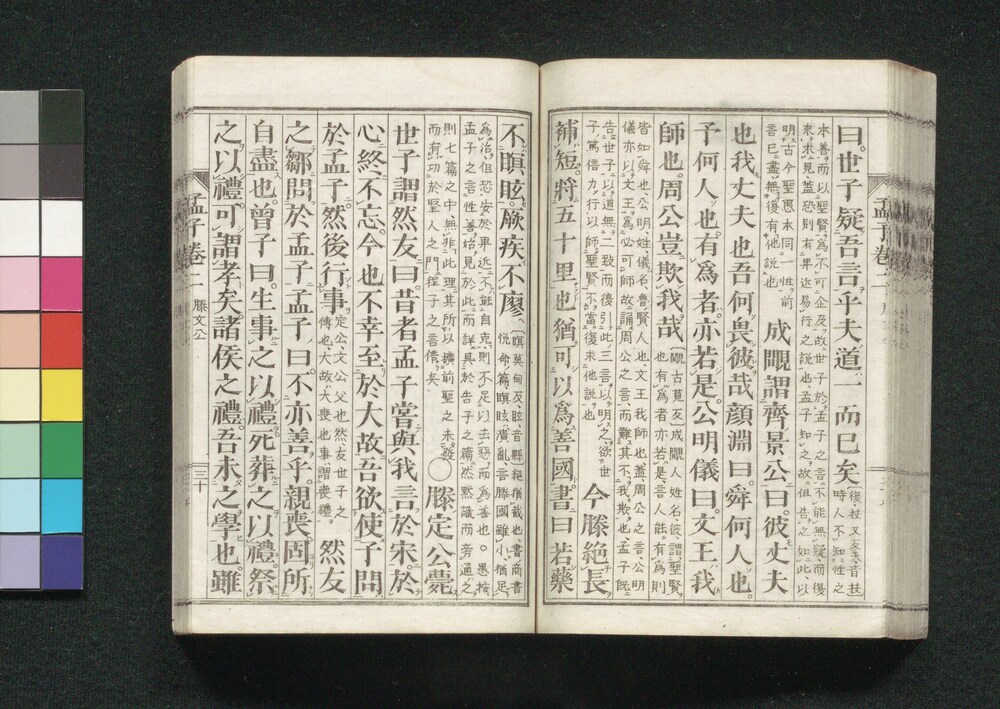 曰。世子疑吾言乎。夫道一而已矣。復扶又反夫音扶 時人不知性之
本善而以聖賢爲不可企及故世子於孟子之言不能無疑而復
來求見蓋恐別有卑近易行之說也孟子知之故但告之如此以
明古今聖愚本同一性前
言已盡無復有他說也 成覸謂齊景公曰。彼丈夫
也我丈夫也吾何畏彼哉顏淵曰。舜何人也
予何人也。有爲者。亦若是。公明儀曰。文王我
師也。周公豈欺我哉 覸古莧反 成覸人姓名彼謂聖賢
也有爲者亦若是言人能有爲則
皆如舜也公明姓儀名魯賢人也文王我師也蓋周公之言公明
儀亦以文王爲必可師故誦周公之言而歎其不我欺也孟子旣
告世子以道無二致而復引此三言以明之欲世
子篤信力行以師聖賢不當復求他說也 今滕絕長
補短。將五十里也猶可以爲善國書曰若藥
不瞑眩。厥疾不瘳。瞑莫甸反眩音縣 絕猶截也書商書
說命篇瞑眩憒亂言滕國雖小猶足
爲治但恐安於卑近不能自克則不足以去惡而爲善也。愚按
孟子之言性善始見於此而詳具於告子之篇然默識而旁通之
則七篇之中無非此理其所以擴前聖之未發
而有功於聖人之門程子之言信矣 ○滕定公薨
世子謂然友曰。昔者孟子嘗與我言於宋。於
心終不忘。今也不幸至於大故。吾欲使子問
於孟子然後行事 定公文公父也然友世子之
傅也大故大喪也事謂喪禮 然友
之鄒問於孟子孟子曰。不亦善乎。親喪。固所
自盡也。曾子曰。生事之以禮死葬之以禮。祭
之以禮。可謂孝矣。諸侯之禮。吾未之學也。雖
孟子卷二 滕文公
三十
孟子卷二